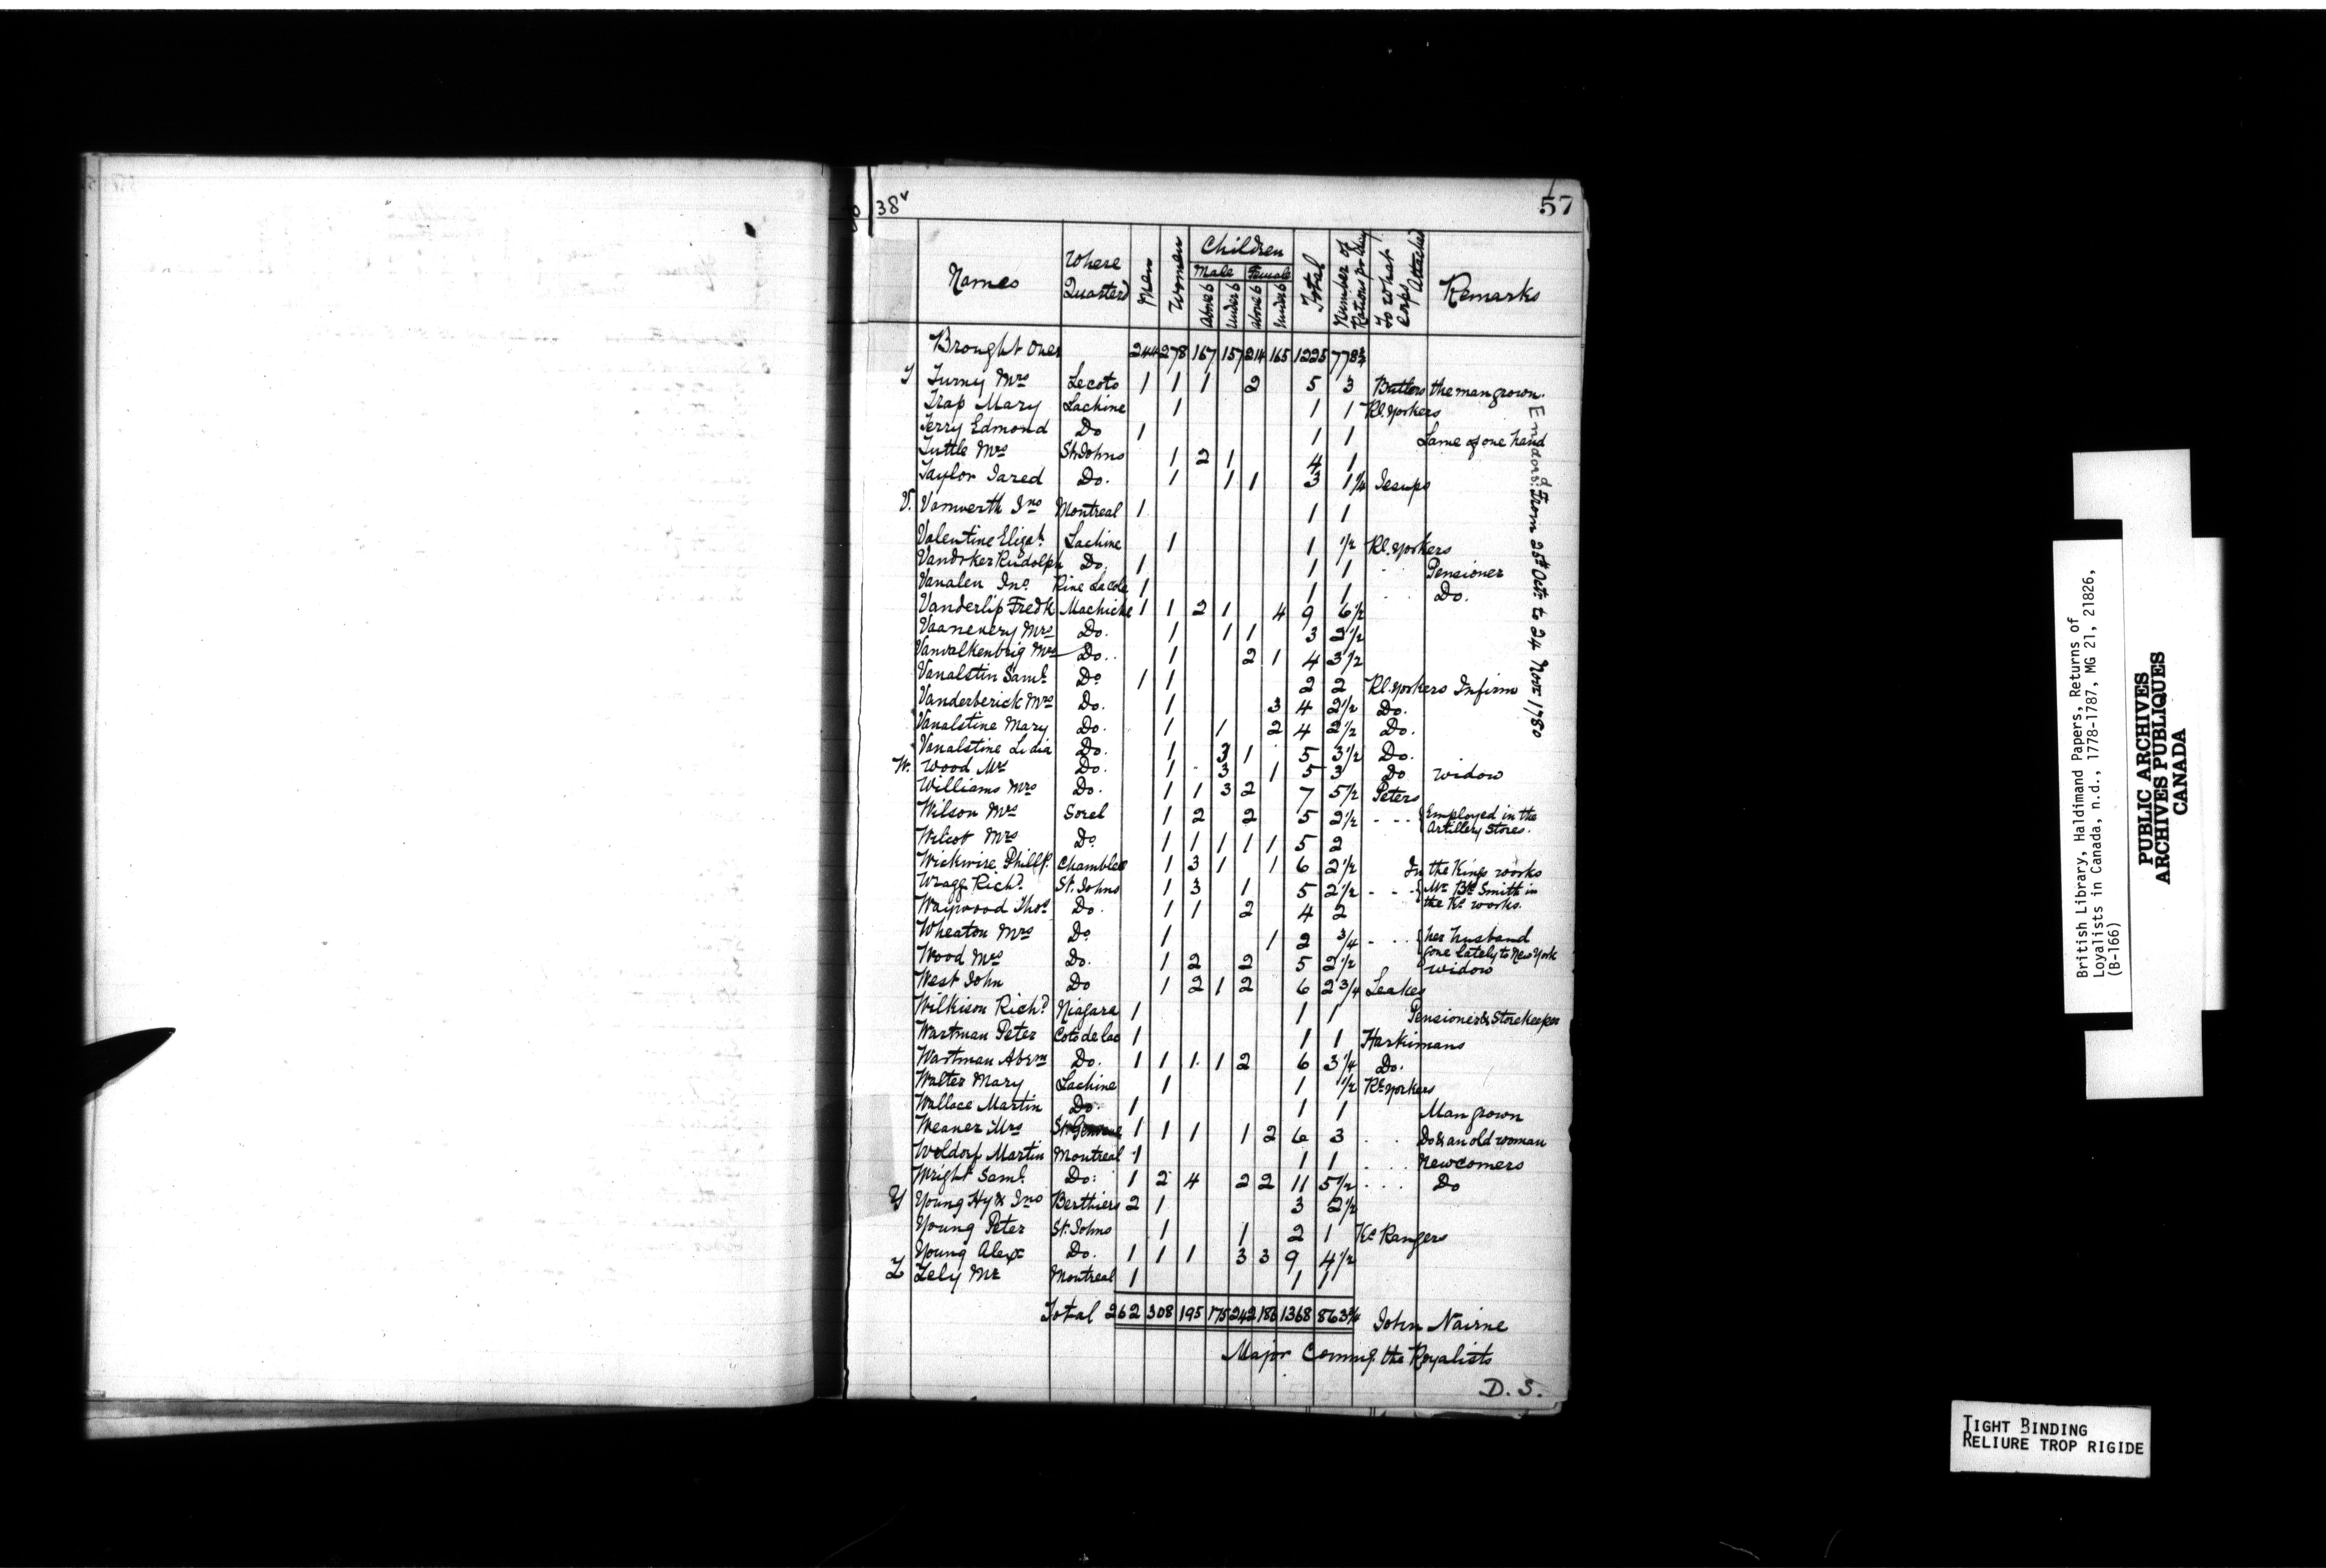 38v
57
Names Where Quarterd Men Women Children Male Female Above 6 Under 6 above 6 Under 6 Total Number of Rations pr day To what Corps Attached Remarks
Brought over 244 278 167 157 214 165 1225 778¾
T Turny Mrs Lecoto 1 1 1 2 5 3 Butlers the man grown.
Trap Mary Lachine 1 1 1 Rl. Yorkers
Terry Edmond Do 1 1 1 Lame of one hand
Tuttle Mrs St. Johns 1 2 1 4 1
Taylor Jared Do. 1 1 1 3 1¼ Jesups
V. Vamverth Jno Montreal 1 1 1
Valentine Elizah. Lachine 1 1 ½ Rl. Yorkers
Vandoker Rudolph Do. 1 1 1 Pensioner
Vanalen Jno. Rine Lacole 1 1 1 Do.
Vanderlip Fredk Machiche 1 1 2 1 4 9 6½
Vaanevery Mrs Do. 1 1 1 3 2½
Vanvalkenbrig Mrs Do. 1 2 1 4 3½
Vanalstin Saml. Do 1 1 2 2 Rl. Yorkers Infirm
Vanderberick Mrs Do. 1 3 4 2½ Do.
Vanalstine Mary Do. 1 1 2 4 2½ Do.
Vanalstine Lidia Do. 1 3 1 5 3½ Do.
W. Wood Mrs Do. 1 3 1 5 3 Do widow
Williams Mrs Do. 1 1 3 2 7 5½ Peters
Wilson Mrs Sorel 1 2 2 5 2½ - - - { Employed in the
Artillery Stores.
Wilcot Mrs Do 1 1 1 1 1 5 2
Wickwire Phillp. Chamblee 1 3 1 1 6 2½ In the Kings works
Wragg Richd. St. Johns 1 3 1 5 2½ - - - { Mr. Smith in
the Ks. works.
Waywood Thos. Do. 1 1 2 4 2
Wheaton Mrs Do 1 1 2 ¾ - - - { her husband
gone lately to New York
Wood Mrs Do. 1 2 2 5 2½ widow
West John Do 1 2 1 2 6 2¾ Leakes
Wilkison Richd. Niagara 1 1 1 Pensioner & Storekeeper
Wartman Peter Coto de lac 1 1 1 Harkimans
Wartman Abrm Do. 1 1 1 1 2 6 3¼ Do.
Walter Mary Lachine 1 1 ½ Rl. Yorkers
Wallace Martin Do. 1 1 1 Man grown
Weaner Mrs 1 1 1 1 2 6 3 Do & an old woman
Woldorf Martin Montreal 1 1 1 Newcomers
Wright Saml. Do: 1 2 4 2 2 11 5½ Do
Y Young Hy & Jno Berthiers 2 1 3 2½
Young Peter St. Johns 1 1 2 1 Ks. Rangers
Young Alex Do. 1 1 1 3 3 9 4½
Z Zely Mr Montreal 1 1 1
Total 262 308 195 175 242 186 1368 863¾ John Nairne
Major Commg. the Royalists
D. S.
Endorsd. From 25th Octr. to 24 Novr. 1780
British Library, Haldimand Papers, Returns of
Loyalists in Canada, n.d., 1778-1787, MG 21, 21826,
(B-166)
PUBLIC ARCHIVES
ARCHIVES PUBLIQUES
CANADA
TIGHT BINDING
RELIURE TROP RIGIDE